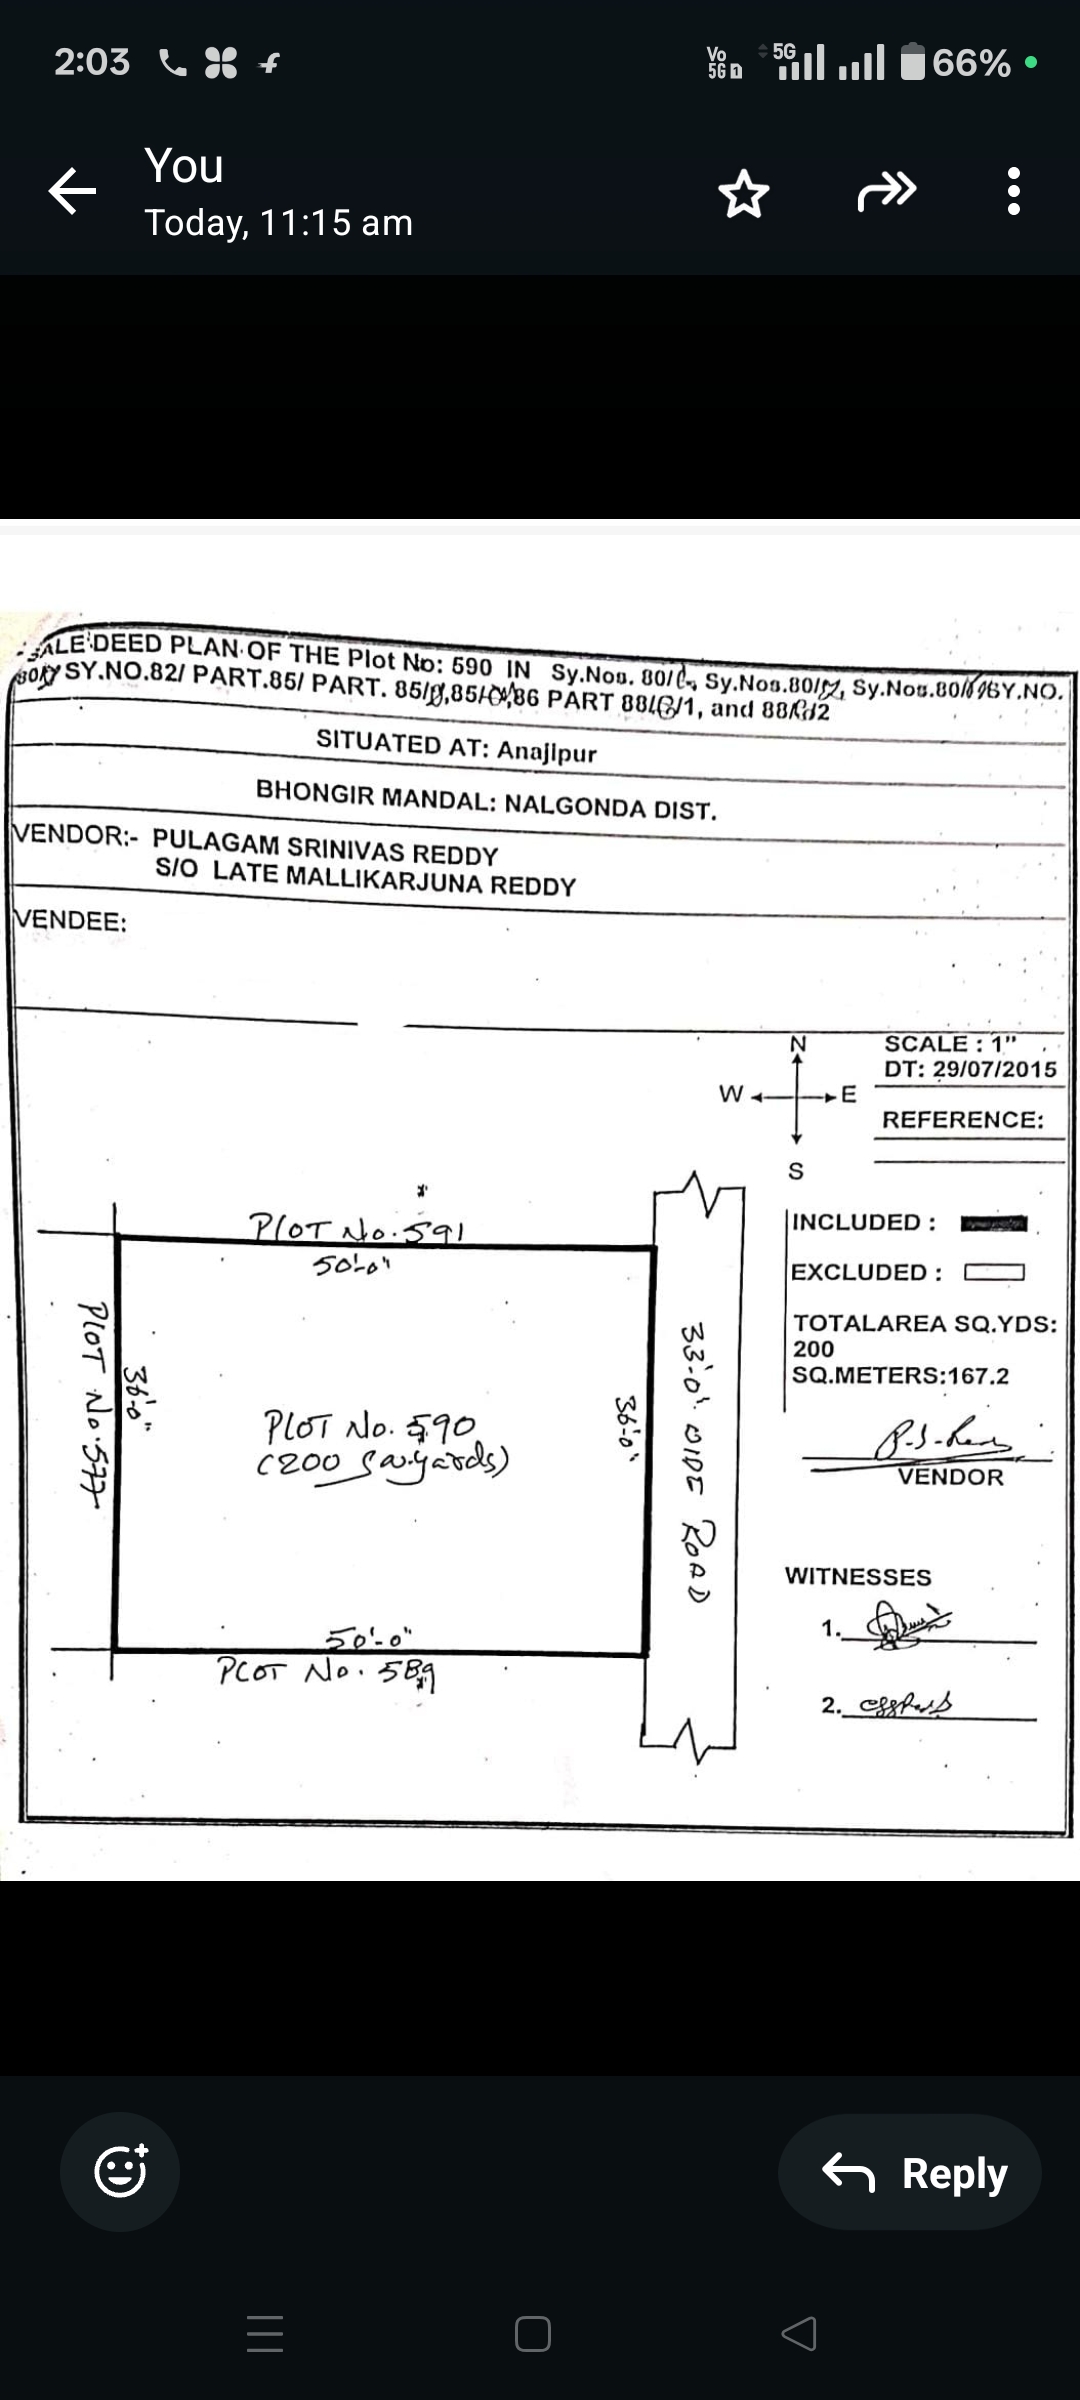 2:03
Vo 5G 5G 66%
You
Today, 11:15 am
SALE DEED PLAN OF THE Plot No: 590 IN Sy.Nos. 80/ Sy.Nos.80/ Sy.Nos.80/ SY.NO.
SY.NO.82/ PART.85/ PART. 85/ ,85/ 86 PART 88/ /1, and 88/ 2
SITUATED AT: Anajipur
BHONGIR MANDAL: NALGONDA DIST.
VENDOR:- PULAGAM SRINIVAS REDDY
S/O LATE MALLIKARJUNA REDDY
VENDEE:
N
W E
S
SCALE : 1"
DT: 29/07/2015
REFERENCE:
PLOT No. 591
50'-0"
PLOT No. 577
36'-0"
PLOT No. 590
(200 Sq.yards)
36'-0"
33'-0" WIDE ROAD
50'-0"
PLOT No. 589
INCLUDED :
EXCLUDED :
TOTALAREA SQ.YDS:
200
SQ.METERS:167.2
VENDOR
WITNESSES
1.
2.
Reply